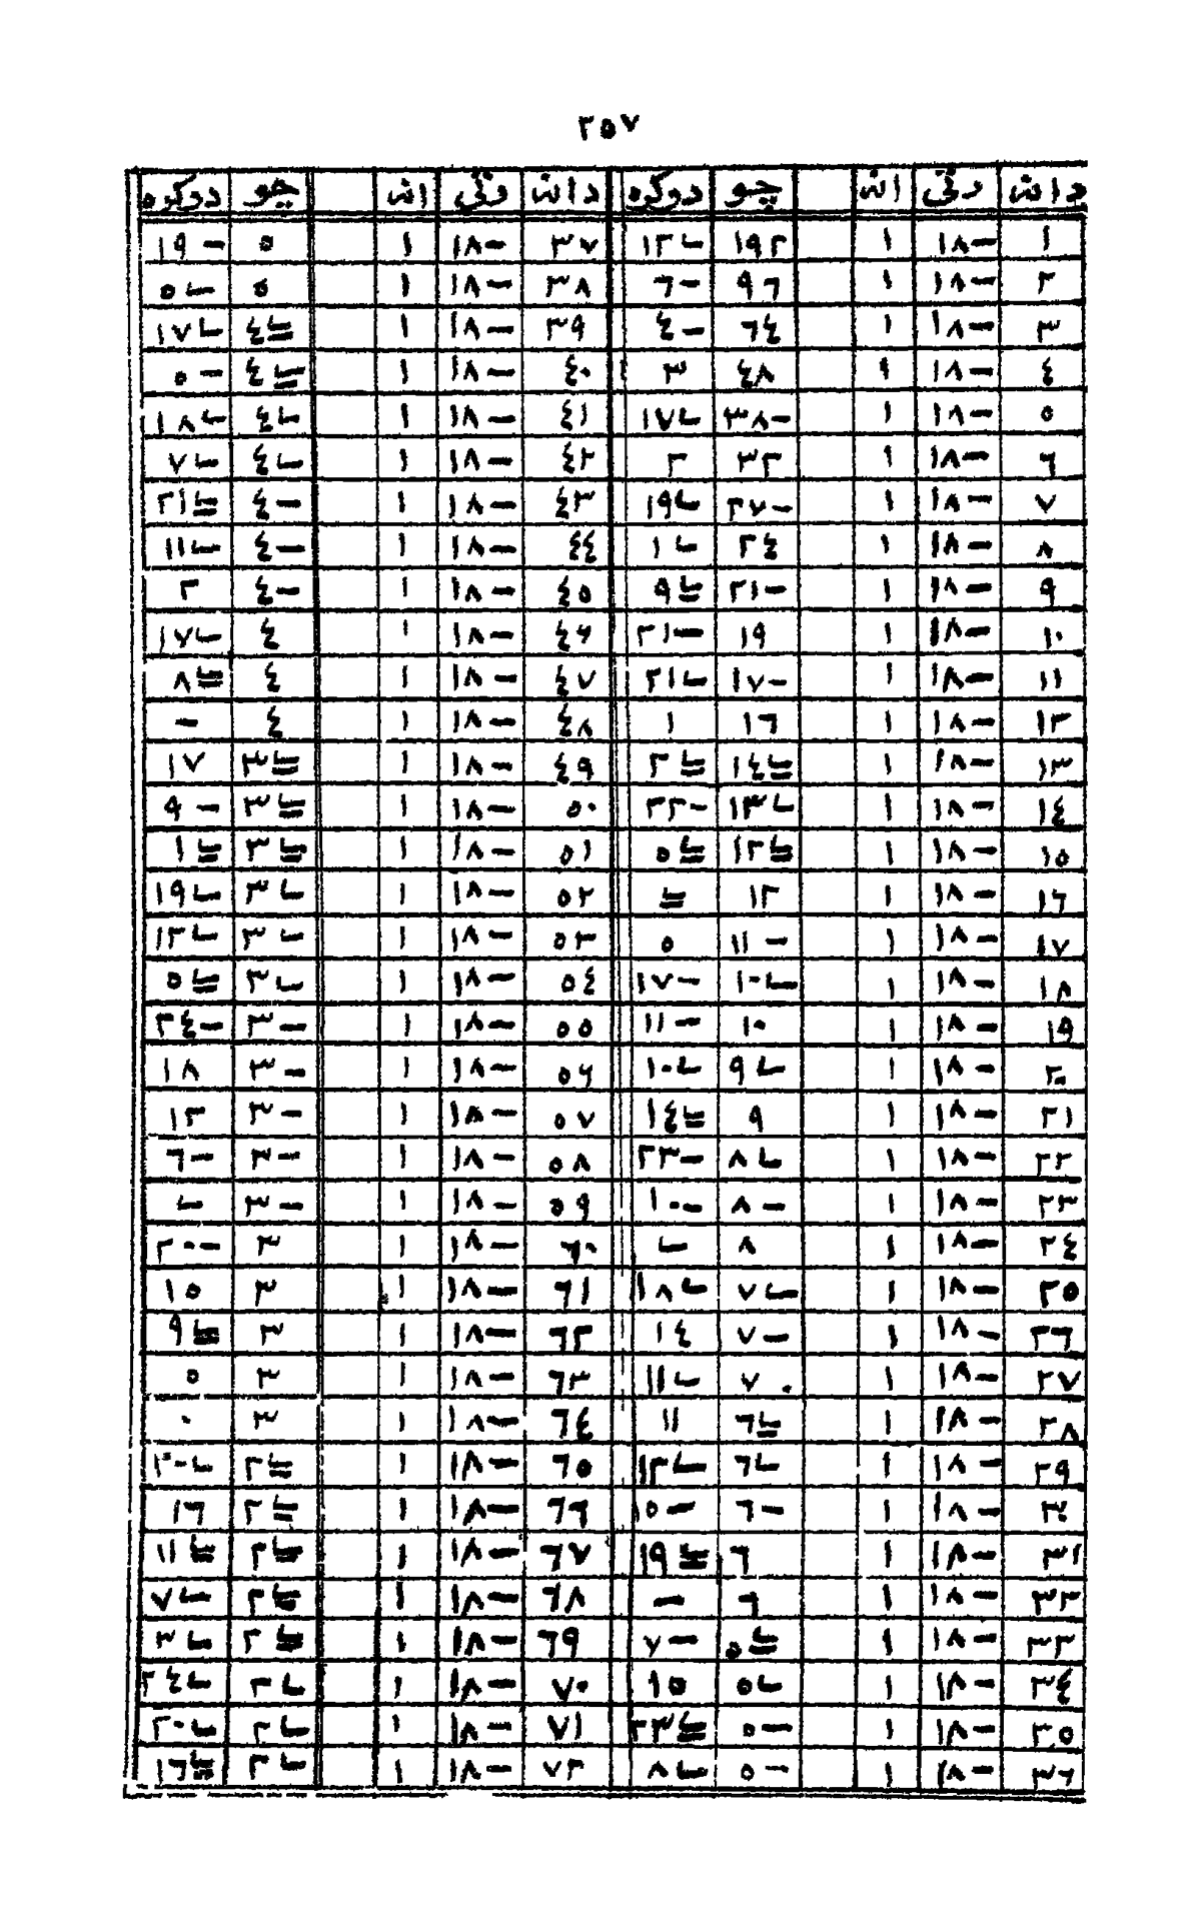 ٢٥٧
دانه رتي انه چو دوكره دانه رتي انه چو دوكره
١ -١٨ ١ ١٩٢ ١٢ ٣٧ -١٨ ١ ٥ -١٩
٢ -١٨ ١ ٩٦ -٦ ٣٨ -١٨ ١ ٥ ٥
٣ -١٨ ١ ٦٤ -٤ ٣٩ -١٨ ١ ٤ ١٧
٤ -١٨ ١ ٤٨ ٣ ٤٠ -١٨ ١ ٤ -٥
٥ -١٨ ١ -٣٨ ١٧ ٤١ -١٨ ١ ٤ ١٨
٦ -١٨ ١ ٣٢ ٢ ٤٢ -١٨ ١ ٤ ٧
٧ -١٨ ١ -٢٧ ١٩ ٤٣ -١٨ ١ -٤ ٢١
٨ -١٨ ١ ٢٤ ١ ٤٤ -١٨ ١ -٤ ١١
٩ -١٨ ١ -٢١ ٩ ٤٥ -١٨ ١ -٤ ٢
١٠ -١٨ ١ ١٩ -٢١ ٤٦ -١٨ ١ ٤ ١٧
١١ -١٨ ١ -١٧ ٢١ ٤٧ -١٨ ١ ٤ ٨
١٢ -١٨ ١ ١٦ ١ ٤٨ -١٨ ١ ٤ -
١٣ -١٨ ١ ١٤ ٢ ٤٩ -١٨ ١ ٣ ١٧
١٤ -١٨ ١ ١٣ -٢٢ ٥٠ -١٨ ١ ٣ -٩
١٥ -١٨ ١ ١٢ ٥ ٥١ -١٨ ١ ٣ ١
١٦ -١٨ ١ ١٢ ٥٢ -١٨ ١ ٣ ١٩
١٧ -١٨ ١ -١١ ٥ ٥٣ -١٨ ١ ٣ ١٢
١٨ -١٨ ١ ١٠ -١٧ ٥٤ -١٨ ١ ٣ ٥
١٩ -١٨ ١ ١٠ -١١ ٥٥ -١٨ ١ -٣ -٢٤
٢٠ -١٨ ١ ٩ ١٠ ٥٦ -١٨ ١ -٣ ١٨
٢١ -١٨ ١ ٩ ١٤ ٥٧ -١٨ ١ -٣ ١٢
٢٢ -١٨ ١ ٨ -٢٣ ٥٨ -١٨ ١ -٣ -٦
٢٣ -١٨ ١ -٨ -١٠ ٥٩ -١٨ ١ -٣
٢٤ -١٨ ١ ٨ ٦٠ -١٨ ١ ٣ -٢٠
٢٥ -١٨ ١ ٧ ١٨ ٦١ -١٨ ١ ٣ ١٥
٢٦ -١٨ ١ -٧ ١٤ ٦٢ -١٨ ١ ٣ ٩
٢٧ -١٨ ١ ٧ ١١ ٦٣ -١٨ ١ ٣ ٥
٢٨ -١٨ ١ ٦ ١١ ٦٤ -١٨ ١ ٣ ٠
٢٩ -١٨ ١ ٦ ١٢ ٦٥ -١٨ ١ ٢ ٢٠
٣٠ -١٨ ١ -٦ -١٥ ٦٦ -١٨ ١ ٢ ١٦
٣١ -١٨ ١ ٦ ١٩ ٦٧ -١٨ ١ ٢ ١١
٣٢ -١٨ ١ ٦ - ٦٨ -١٨ ١ ٢ ٧
٣٣ -١٨ ١ ٥ -٧ ٦٩ -١٨ ١ ٢ ٣
٣٤ -١٨ ١ ٥ ١٥ ٧٠ -١٨ ١ ٢ ٢٤
٣٥ -١٨ ١ -٥ ٢٣ ٧١ -١٨ ١ ٢ ٢٠
٣٦ -١٨ ١ -٥ ٨ ٧٢ -١٨ ١ ٢ ١٦